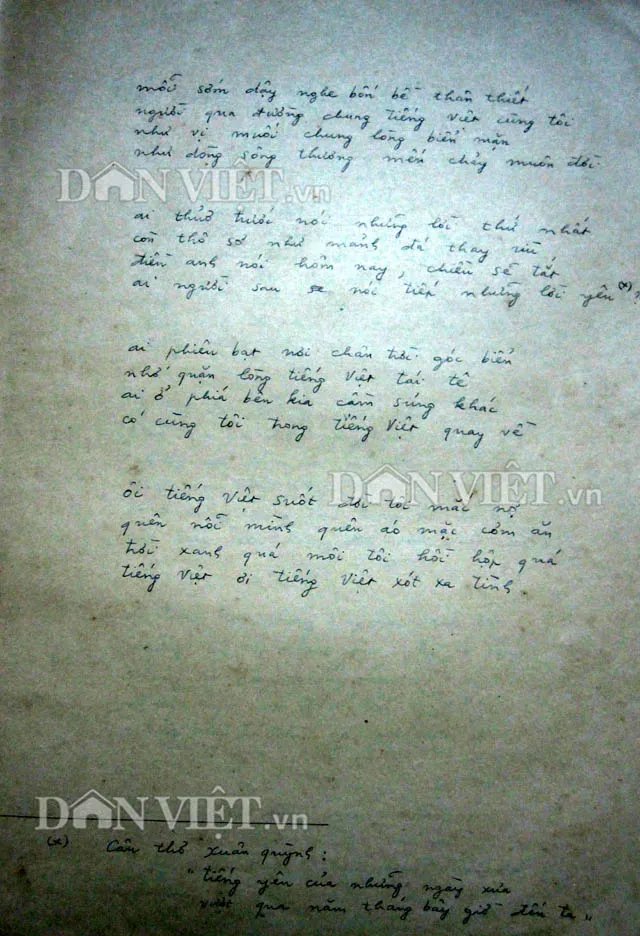 mỗi sớm dậy nghe bốn bề thân thiết
người qua đường chung tiếng Việt cùng tôi
như vị muối chung lòng biển mặn
như dòng sông thương mến chảy muôn đời
DÂN VIỆT.vn
ai thuở trước nói những lời thứ nhất
còn thô sơ như mảnh đá thay rìu
điều anh nói hôm nay, chiều sẽ tắt
ai người sau sẽ nói tiếp những lời yêu (x)?
ai phiêu bạt nơi chân trời góc biển
nhớ quặn lòng tiếng Việt tái tê
ai ở phía bên kia cầm súng khác
có cùng tôi trong tiếng Việt quay về
DÂN VIỆT.vn
ôi tiếng Việt suốt đời tôi mắc nợ
quên nỗi mình quên áo mặc cơm ăn
trời xanh quá môi tôi hồi hộp quá
tiếng Việt ơi tiếng Việt xót xa tình
DÂN VIỆT.vn
(x) Câu thơ Xuân Quỳnh:
"tiếng yêu của những ngày xưa
vượt qua năm tháng bây giờ đến ta"